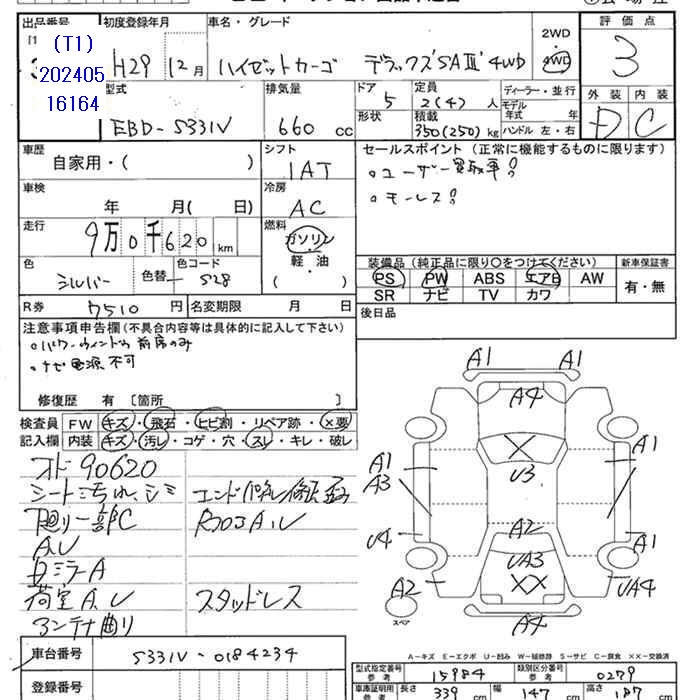 出品番号 初度登録年月 車名・グレード 2WD 評価点
(T1)
202405
16164
H29年 12月 ハイゼットカーゴ デラックス"SAⅢ" 4WD 4WD 3
型式 排気量 ドア 定員 ディーラー・並行 外装 内装
EBD-S331V 660 cc 5 2(4)人 モデル年式 年 D C
形状 積載 350(250)kg ハンドル 左・右
車歴 シフト セールスポイント (正常に機能するものに限ります)
自家用・( ) IAT 。ユーザー買取車!
車検 冷房 。モールス!
年 月( 日) AC
走行 燃料
9万0千620km ガソリン
軽・油
( )
色 カラーNo 色替 色コード
シルバー S28
装備品 (純正品に限り○をつけてください) 新車保証書
PS PW ABS エアB AW 有・無
SR ナビ TV カワ
R券 7510円 名変期限 月 日 後日品
注意事項申告欄(不具合内容等は具体的に記入して下さい)
。パワーウィンドウ前席のみ
。ナビ電源不可
修復歴 有 〔箇所 〕
検査員 FW キズ・飛石・ヒビ割・リペア跡・×要
記入欄 内装 キズ・汚レ・コゲ・穴・スレ・キレ・破レ
オド90620
シート汚れ、シミ
廻り一部C
AU
ミラーA
荷室A、U
アンテナ曲り
エンドパネル修正歪み
スタッドレス
A1 A1
A4
A1 U3 A1
A3
U4 A2 A1
UA3
A2 UA4
スペア A4
A-キズ E-エクボ U-凹み W-補修跡 S-サビ C-腐食 ××-交換済
車台番号 S331V-0184234
登録番号
型式指定番号 参考 15984 類別区分番号 参考 0279
車庫証明用 参考 長さ 339cm 幅 147cm 高さ 187cm